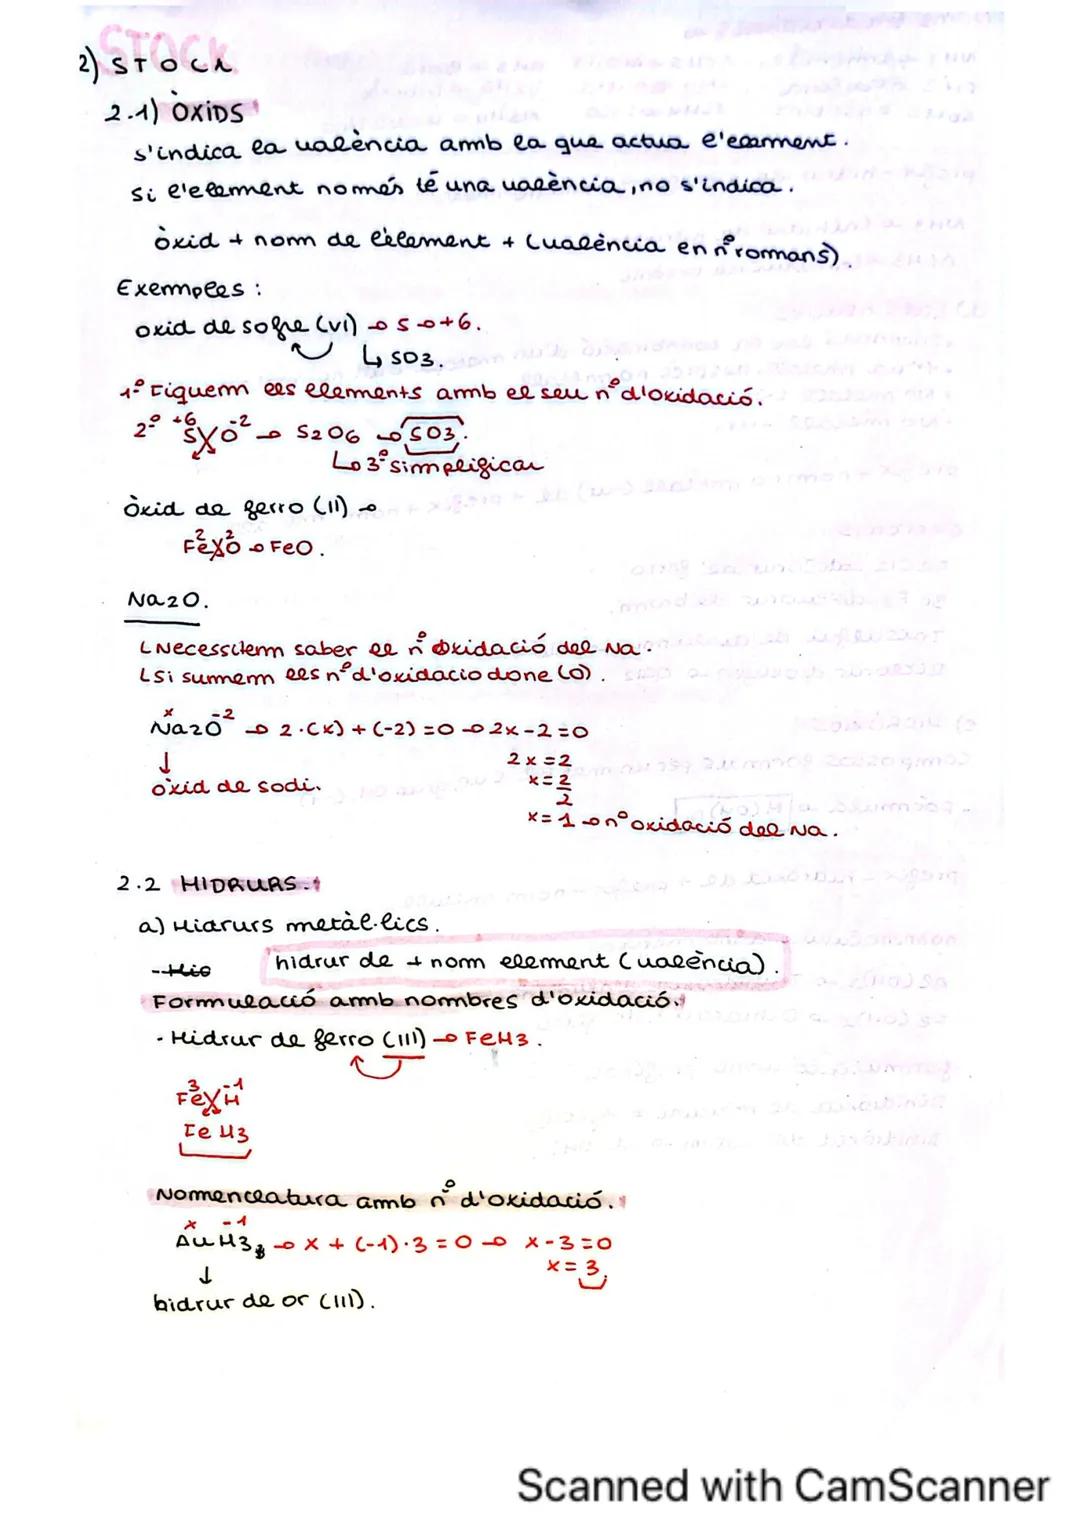 STOCK
2) STOCK
2.1) ÒXIDS
s'indica la valència amb la que actua l'element.
Si l'element només té una valència, no s'indica.
òxid + nom de l'element + (valència en nº romans).
Exemples:
oxid de sofre (VI) → S → +6.
↳ SO3.
1º Fiquem els elements amb el seu nº d'oxidació.
2º S+6 O-2 → S2O6 → SO3.
↳ 3º simplificar
Òxid de ferro (II) →
Fe2 O2 → FeO.
Na2O.
↳ Necessitem saber el nº oxidació del Na.
↳ Si sumem els nº d'oxidacio done (0).
x -2
Na2O → 2·(x) + (-2) = 0 → 2x - 2 = 0
↓ 2x = 2
òxid de sodi. x = 2/2
x = 1 → nº oxidació del Na.
2.2 HIDRURS.
a) Hidrurs metàl·lics.
- Hid
hidrur de + nom element (valència).
Formulació amb nombres d'oxidació.
- Hidrur de ferro (III) → FeH3.
3 -1
Fe H
FeH3
Nomenclatura amb nº d'oxidació.
x -1
AuH3 → x + (-1)·3 = 0 → x - 3 = 0
↓ x = 3
hidrur de or (III).
Scanned with CamScanner